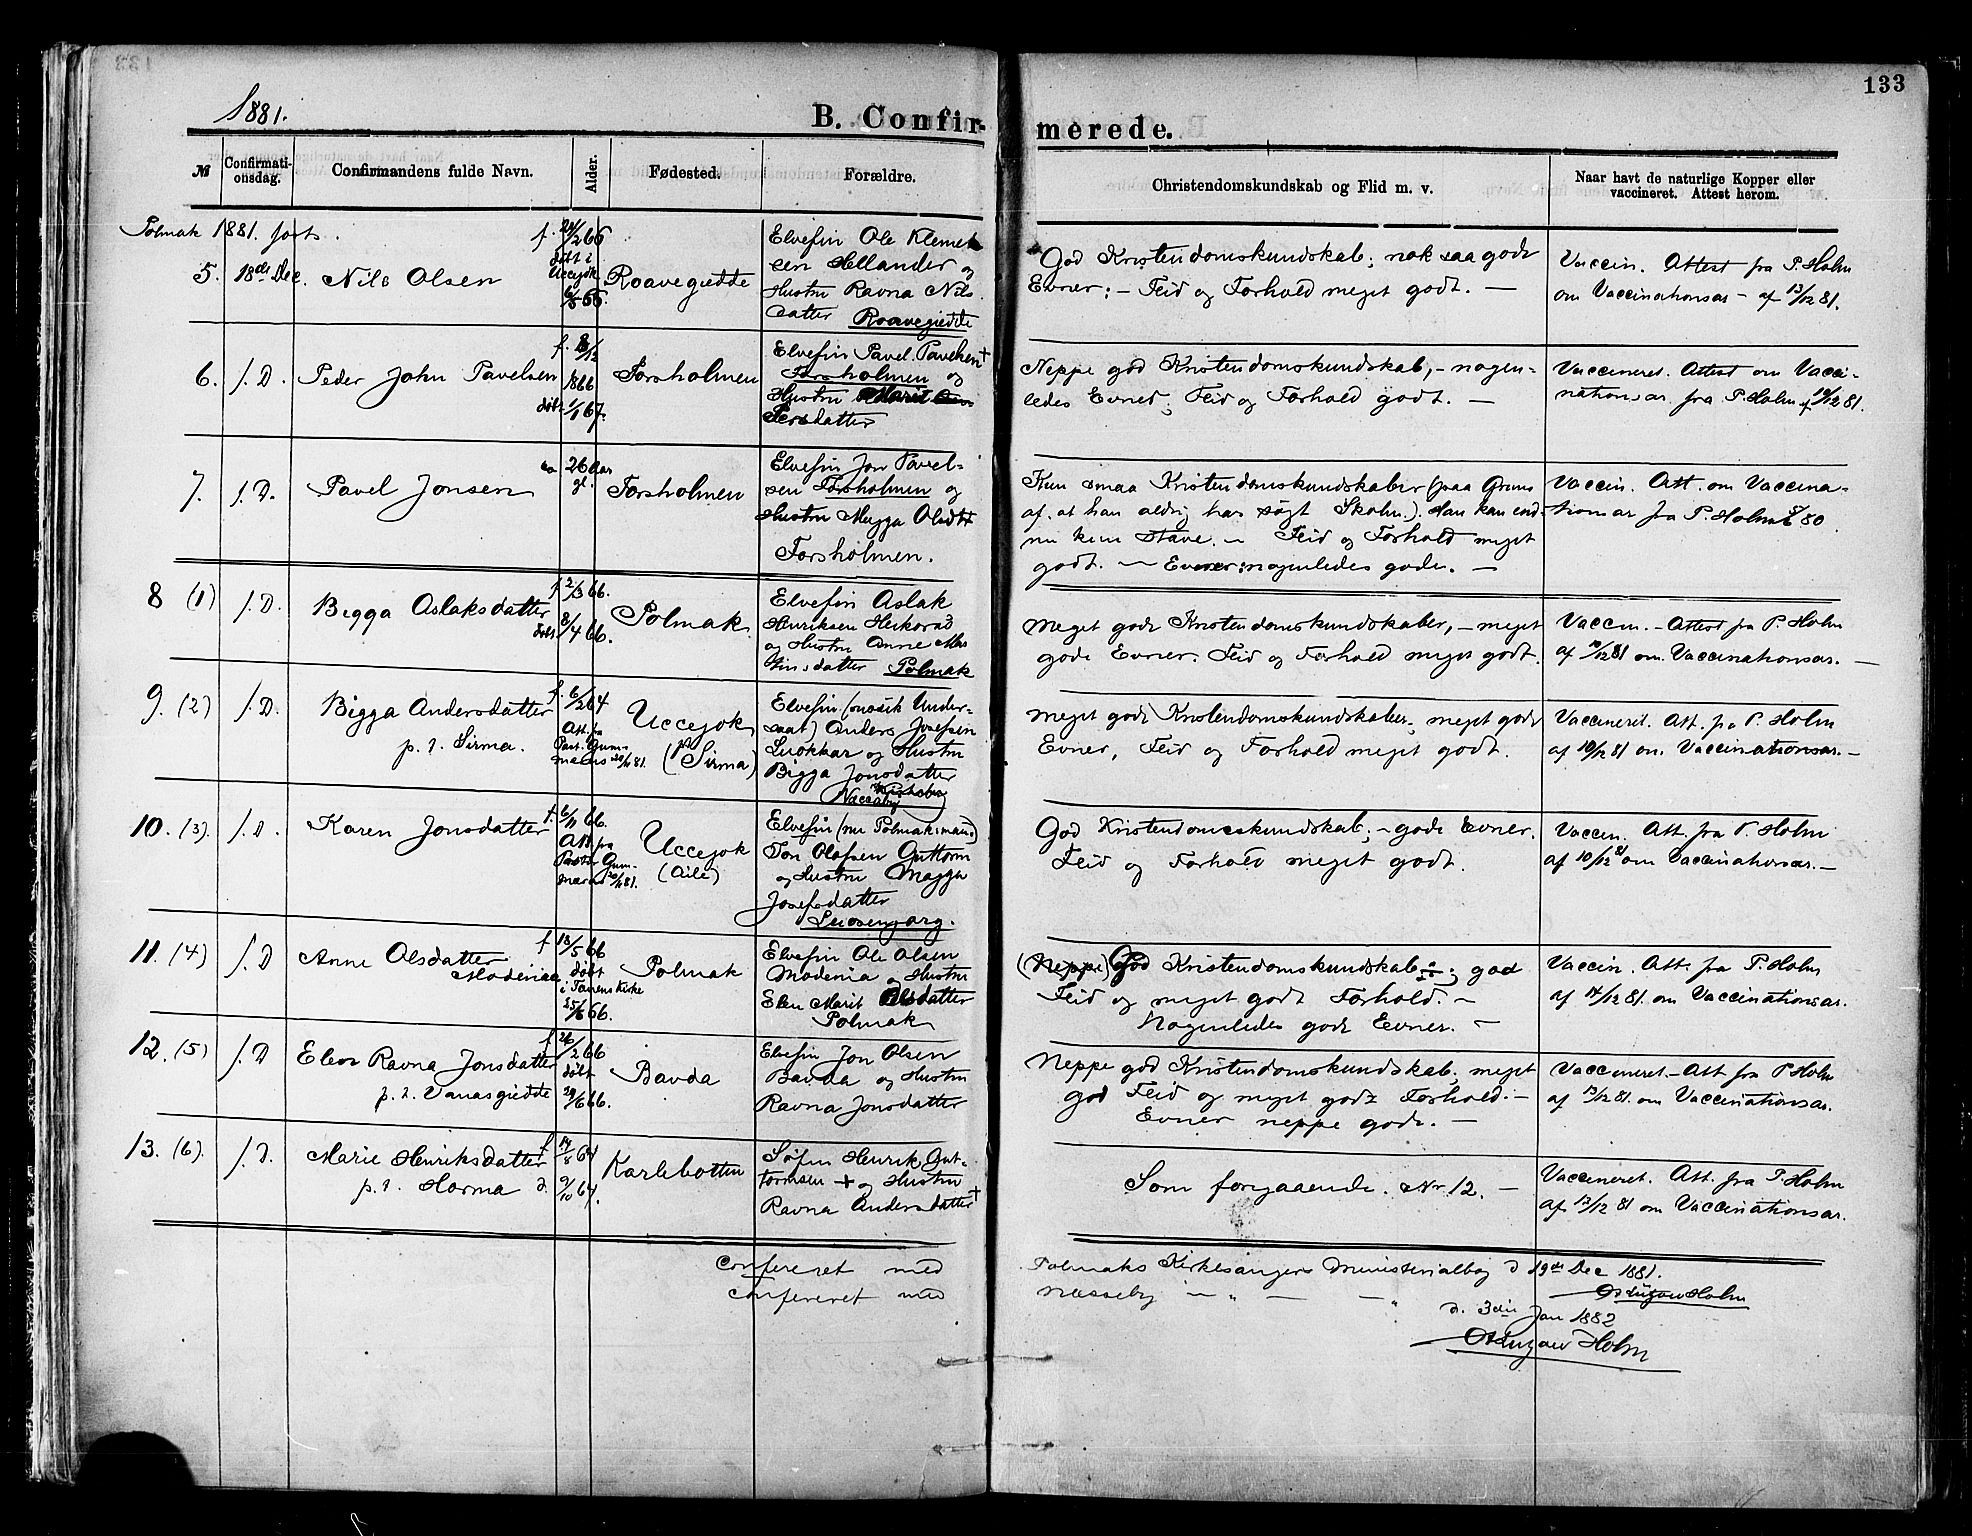 133
1881.
B. Confirmerede.
№
Confirmationsdag.
Confirmandens fulde Navn.
Alder.
Fødested.
Forældre.
Christendomskundskab og Flid m. v.
Naar havt de naturlige Kopper eller
vaccineret. Attest herom.
Polmak 1881. forts.
5. 18de Dec. Nils Olsen
f. 24/2 66
døbt i
Uccejok
6/3 66.
Roavegiedde
Elvefin Ole Klemet-
sen Hellander og
Hustru Ravna Nils-
datter Roavegiedde
God Kristendomskundskab; nok saa gode
Evner; – Flid og Forhold meget godt. –
Vaccin. Attest fra P. Holm
om Vaccinationsar – af 13/12 81.
6. s. D. Peder John Pavelsen
f. 8/12
1866
døbt 1/1 67.
Forsholmen
Elvefin Pavel Pavelsen +
Forsholmen og
Hustru Marit
Persdatter
Neppe god Kristendomskundskab, – nogen-
ledes Evner; Flid og Forhold godt. –
Vaccineret. Attest om Vacci-
nationsar fra P. Holm af 14/12 81.
7. s. D. Pavel Jonsen
ca 26 Aar
gl.
Forsholmen
Elvefin Jon Pavel-
sen Forsholmen og
Hustru Magga Olsdtr
Forsholmen.
Kun smaa Kristendomskundskaber (paa Grund
af, at han aldrig har søgt Skolen.). Han kan end-
nu kun stave. – Flid og Forhold meget
godt. – Evner: nogenledes gode. –
Vaccin. Att. om Vaccina-
tionsar fra P. Holm 80
8 (1) s. D. Bigga Aslaksdatter
f. 2/3 66.
døbt 8/4 66.
Polmak
Elvefin Aslak
Henriksen
og Hustru Anne Mar-
tinsdatter Polmak
Meget gode Kristendomskundskaber, – meget
gode Evner. Flid og Forhold meget godt.
Vaccin. – Attest fra P. Holm
af 12/81 om Vaccinationsar. –
9. (2) s. D. Bigga Andersdatter
p. t. Sirma.
f. 6/2 64
Att. fra
Past. Gum-
merus 81.
Uccejok
(Sirma)
Elvefin (norsk Under-
saat) Anders Josefsen
Luokkar og Hustru
Bigga Jonsdatter
Meget gode Kristendomskundskaber, meget gode
Evner, Flid og Forhold meget godt.
Vaccineret. Att. fra P. Holm
af 10/12 81 om Vaccinationsar. –
10. (3). s. D. Karen Jonsdatter
f. 6/11 66.
Att. fra
Pastor Gum-
merus 81.
Uccejok
(Aile)
Elvefin (nu Polmaksmand)
Jon Olafsen Guttorm
og Hustru Magga
Josefsdatter
God Kristendomskundskab; – gode Evner.
Flid og Forhold meget godt.
Vaccin. Att. fra P. Holm
af 10/12 81 om Vaccinationsar. –
11. (4) s. D Anne Olsdatter
Modenia
f 13/5 66
døbt
i Tanens Kirke
25/6 66.
Polmak
Elvefin Ole Olsen
Modenia og Hustru
Elen Marit Olsdatter
Polmak
(Neppe) God Kristendomskundskab; god
Flid og meget godt Forhold. –
Nogenledes gode Evner. –
Vaccin. Att. fra P. Holm
af 14/12 81. om Vaccinationsar.
12. (5) s. D Elen Ravna Jonsdatter
p. t. Vanasgiedde
f 26/2 66
døbt
24/6 66.
Bavda
Elvefin Jon Olsen
Bavda og Hustru
Ravna Jonsdatter
Neppe god Kristendomskundskab; meget
god Flid og meget godt Forhold. –
Evner neppe gode. –
Vaccineret – Att fra P Holm
af 13/12 81. om Vaccinationsar.
13. (6). s. D. Marie Henriksdatter
p. t. Horma
f 14/8 64
d. 9/10 64.
Karlebotten
Søfin Henrik Gut-
tormsen + og Hustru
Ravna Andersdatter +
Som foregaaende. Nr. 12. –
Vaccineret. Att. fra P. Holm
af 13/12 81 om Vaccinationsar.
Confereret med Polmaks Kirkesangers Ministerialbog d 19de Dec 1881.
Holm
Confereret med Næsseby – „ – – „
d. 3die Jan 1882
Holm